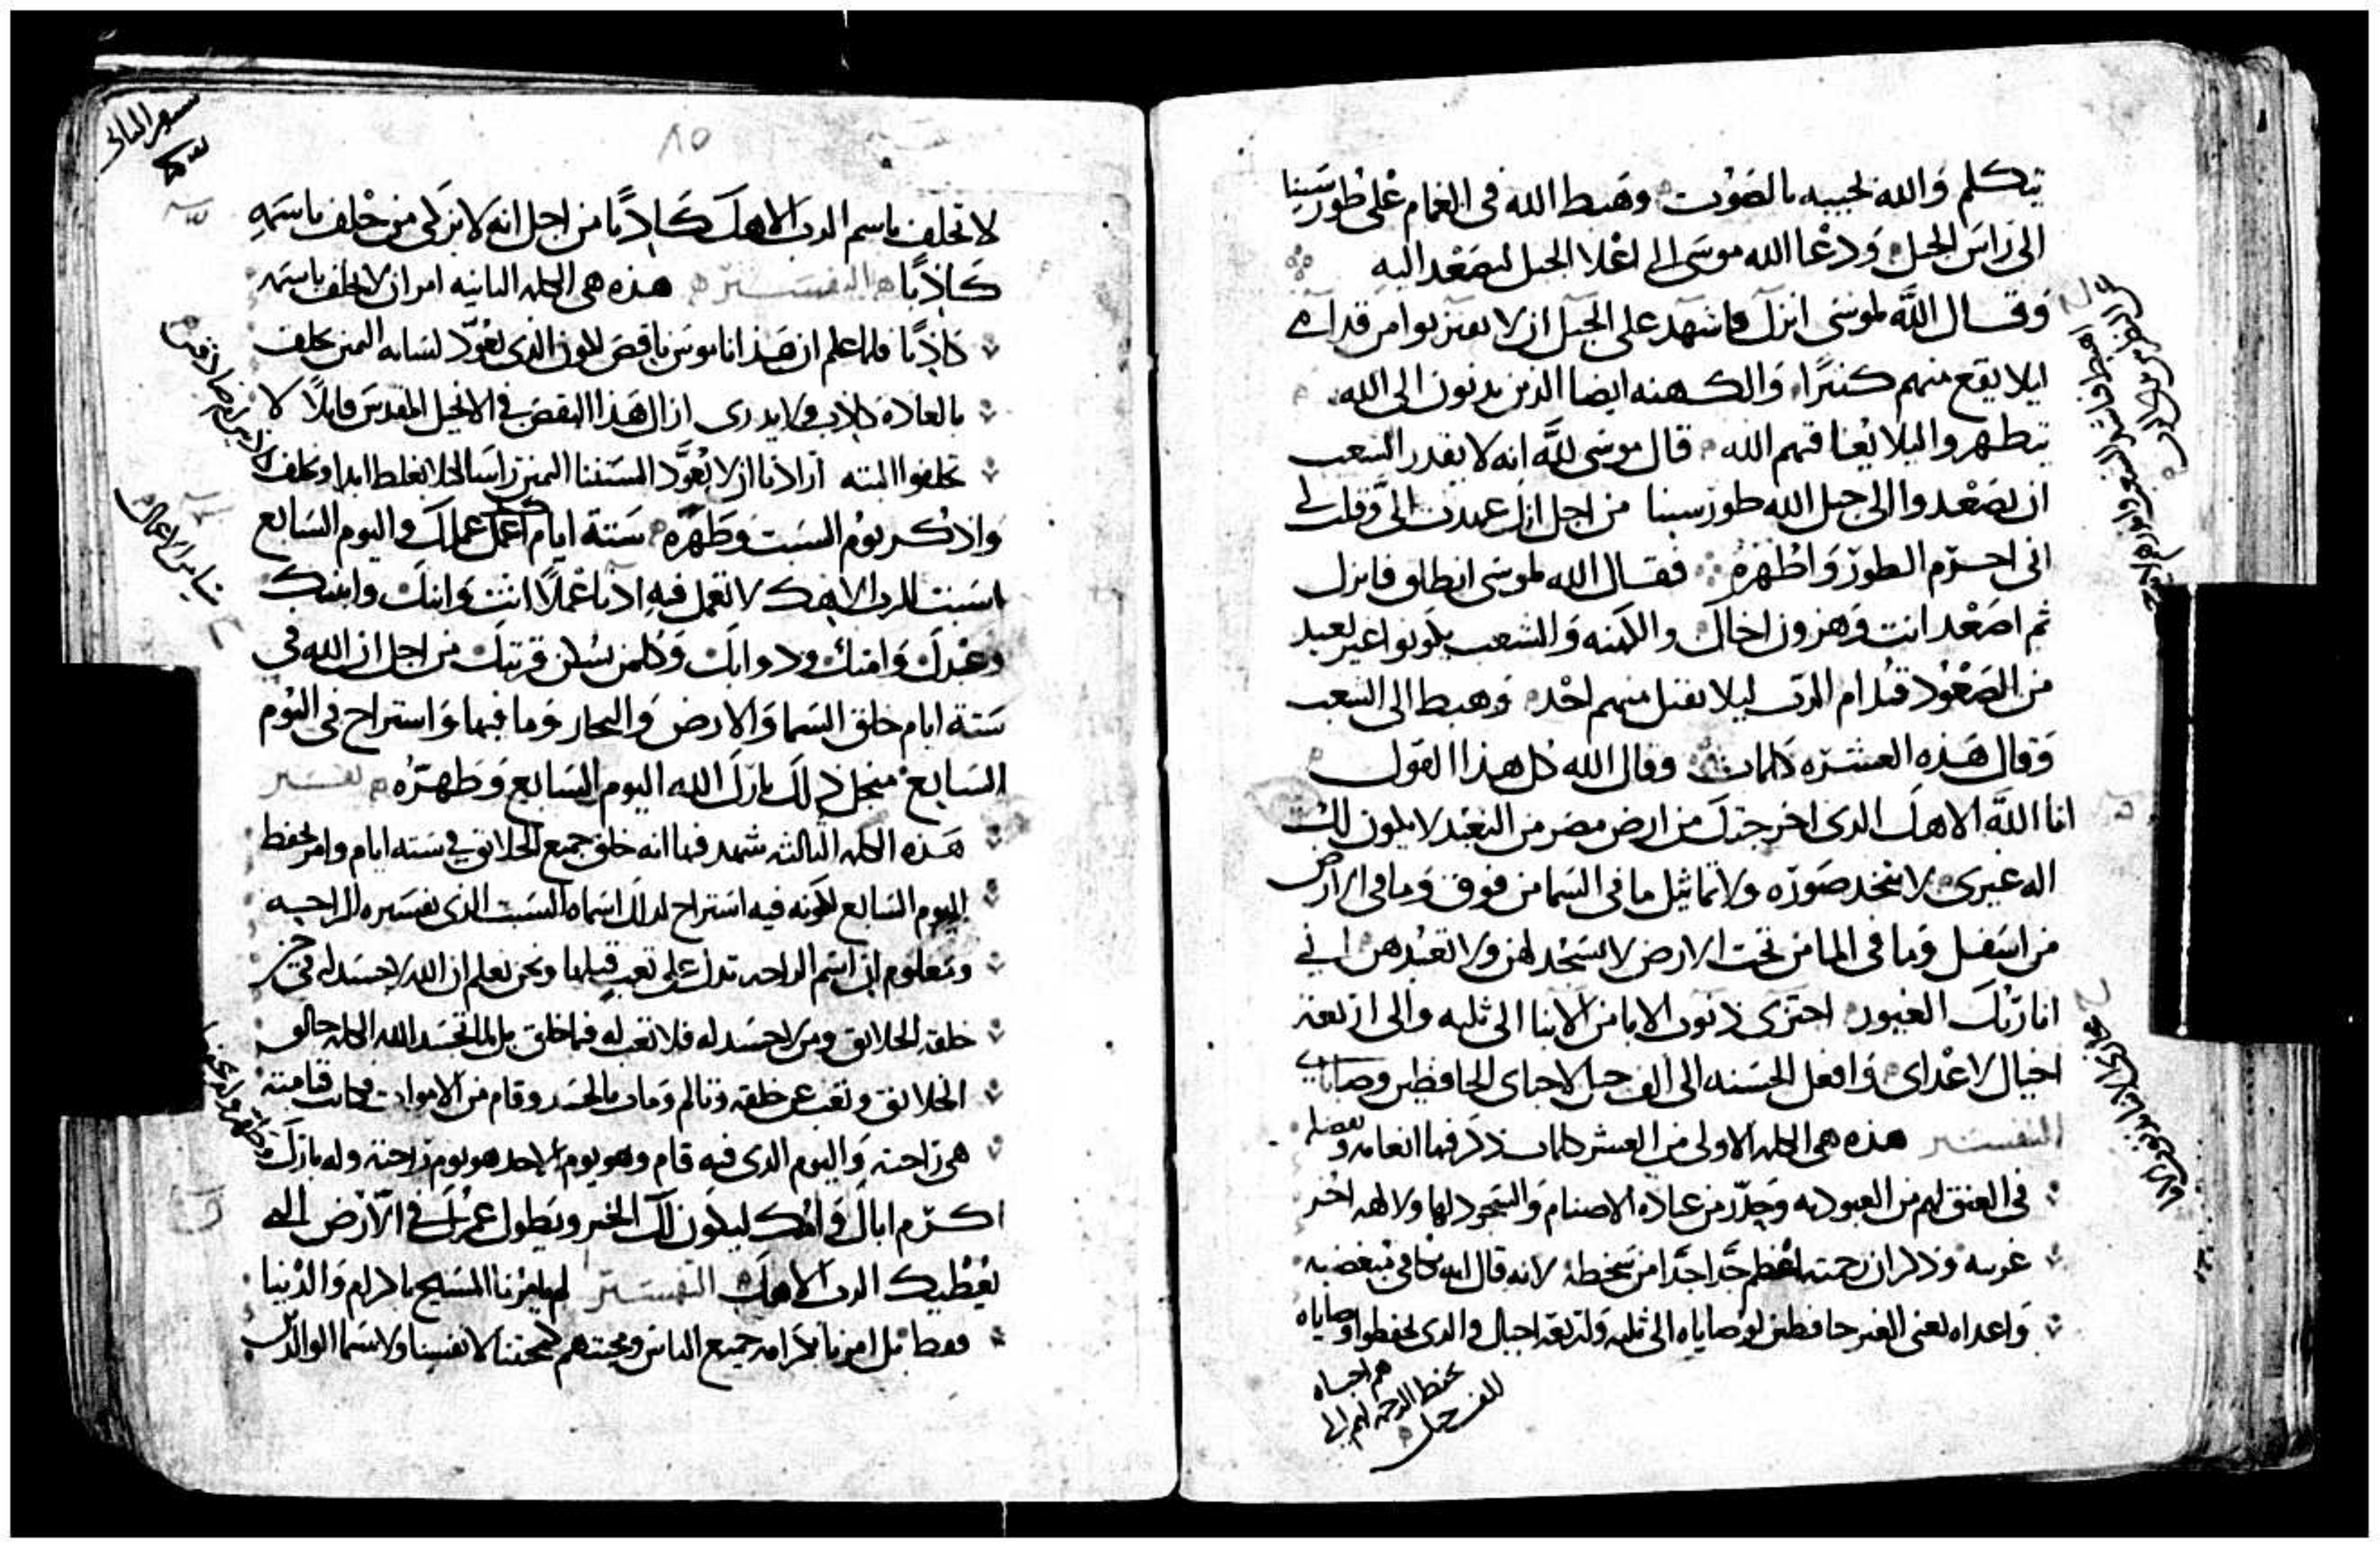 يتكلم والله يجيبه بالصوت وهبط الله في الغمام على طور سينا
الى راس الجبل ودعا الله موسى الى اعلا الجبل ليصعد اليه
وقال الله لموسى انزل فاشهد على الجبل ان لا يقتربوا من قدام
ليلا يقع منهم كثيرا والكهنه ايضا الذين يدنون الى الله
يتطهروا ليلا يعاقبهم الله قال موسى لله انه لا يقدر الشعب
ان يصعدوا الى جبل الله طور سينا من اجل انك عهدت الي وقلت لي
اني احرم الطور واطهره فقال الله لموسى انطلق فانزل
ثم اصعد انت وهرون اخاك والكهنه والشعب يكونوا
من الصعود قدام الرب ليلا يقتل منهم احد وهبط الى الشعب
وقال هذه العشره كلمات وقال الله كل هذا القول
انا الله الاهك الذي اخرجتك من ارض مصر من التعبد لا يكون لك
اله غيري لا تتخد صوره ولا تماثيل ما في السما من فوق وما في الارض
من اسفل وما في الما من تحت الارض لا تسجد لهن ولا تعبدهن اني
انا ربك الغيور اجزي ذنوب الابا من الابنا الى ثلثه والى اربعه
اجيال لاعداى وافعل الحسنه الى الف جيل لاحباى الحافظين وصاياى
التفسير هذه هي الكلمه الاولى من العشر كلمات ذكر فيها انعامه وفضله
في العتق لهم من العبوديه وحذر من عبادة الاصنام والسجود لها ولا لهه اخر
غريبه وذكر ان رحمته اعظم جدا جدا من سخطه لانه قال انه يكافي مبغضيه
واعداه يعني الغير حافظين لوصاياه الى ثلثه ولاربعه اجيال والذي يحفظوا وصاياه
هم احباه
يحفظ الرحمه لهم الى
الف جيل
٨٥
لا تحلف باسم الرب الاهك كاذبا من اجل انه لا يزكي من حلف باسمه
كاذبا التفسير هذه هي الكلمه الثانيه امر ان لا يحلف باسمه
كاذبا فلما علم ان هذا ناموس ناقص لكون الذي يعود لسانه اليمين يحلف
بالعاده كاذب ولا يدري ازال هذا النقص في الانجيل المقدس قايلا لا
تحلفوا البته ارادنا ان لا نعود السنتنا اليمين راسا ليلا نغلط ابدا ونحلف
واذكر يوم السبت وطهره ستة ايام اعمل عملك واليوم السابع
اسبت للرب الاهك لا تعمل فيه ادنا عملا انت وابنك وابنتك
وعبدك وامتك ودوابك وكلمن يسكن قريتك من اجل ان الله في
ستة ايام خلق السما والارض والبحار وما فيها واستراح في اليوم
السابع منجل ذلك بارك الله اليوم السابع وطهره تفسير
هذه الكلمه الثالثه شهد فيها انه خلق جميع الخلايق في سته ايام وامر بحفظ
اليوم السابع لكونه فيه استراح لذلك اسماه السبت الذي تفسيره الراحه
ومعلوم ان اسم الراحه تدل على تعب قبلها ونحن نعلم ان الله لا جسد له في حين
خلقه الخلايق ومن لا جسد له فلا تعب له فيما خلق بل لما تجسد الله الكلمه خالق
الخلايق وتعب عن خلقه وتالم ومات بالجسد وقام من الاموات فكانت قيامته
هي راحته واليوم الذي فيه قام وهو يوم الاحد هو يوم راحته وله بارك
اكرم اباك وامك ليكون لك الخير ويطول عمرك في الارض التي
يعطيك الرب الاهك التفسير لم يامرنا المسيح باكرام والدينا
فقط بل امرنا باكرام جميع الناس ومحبتهم كمحبتنا لانفسنا ولا سيما الوالدين